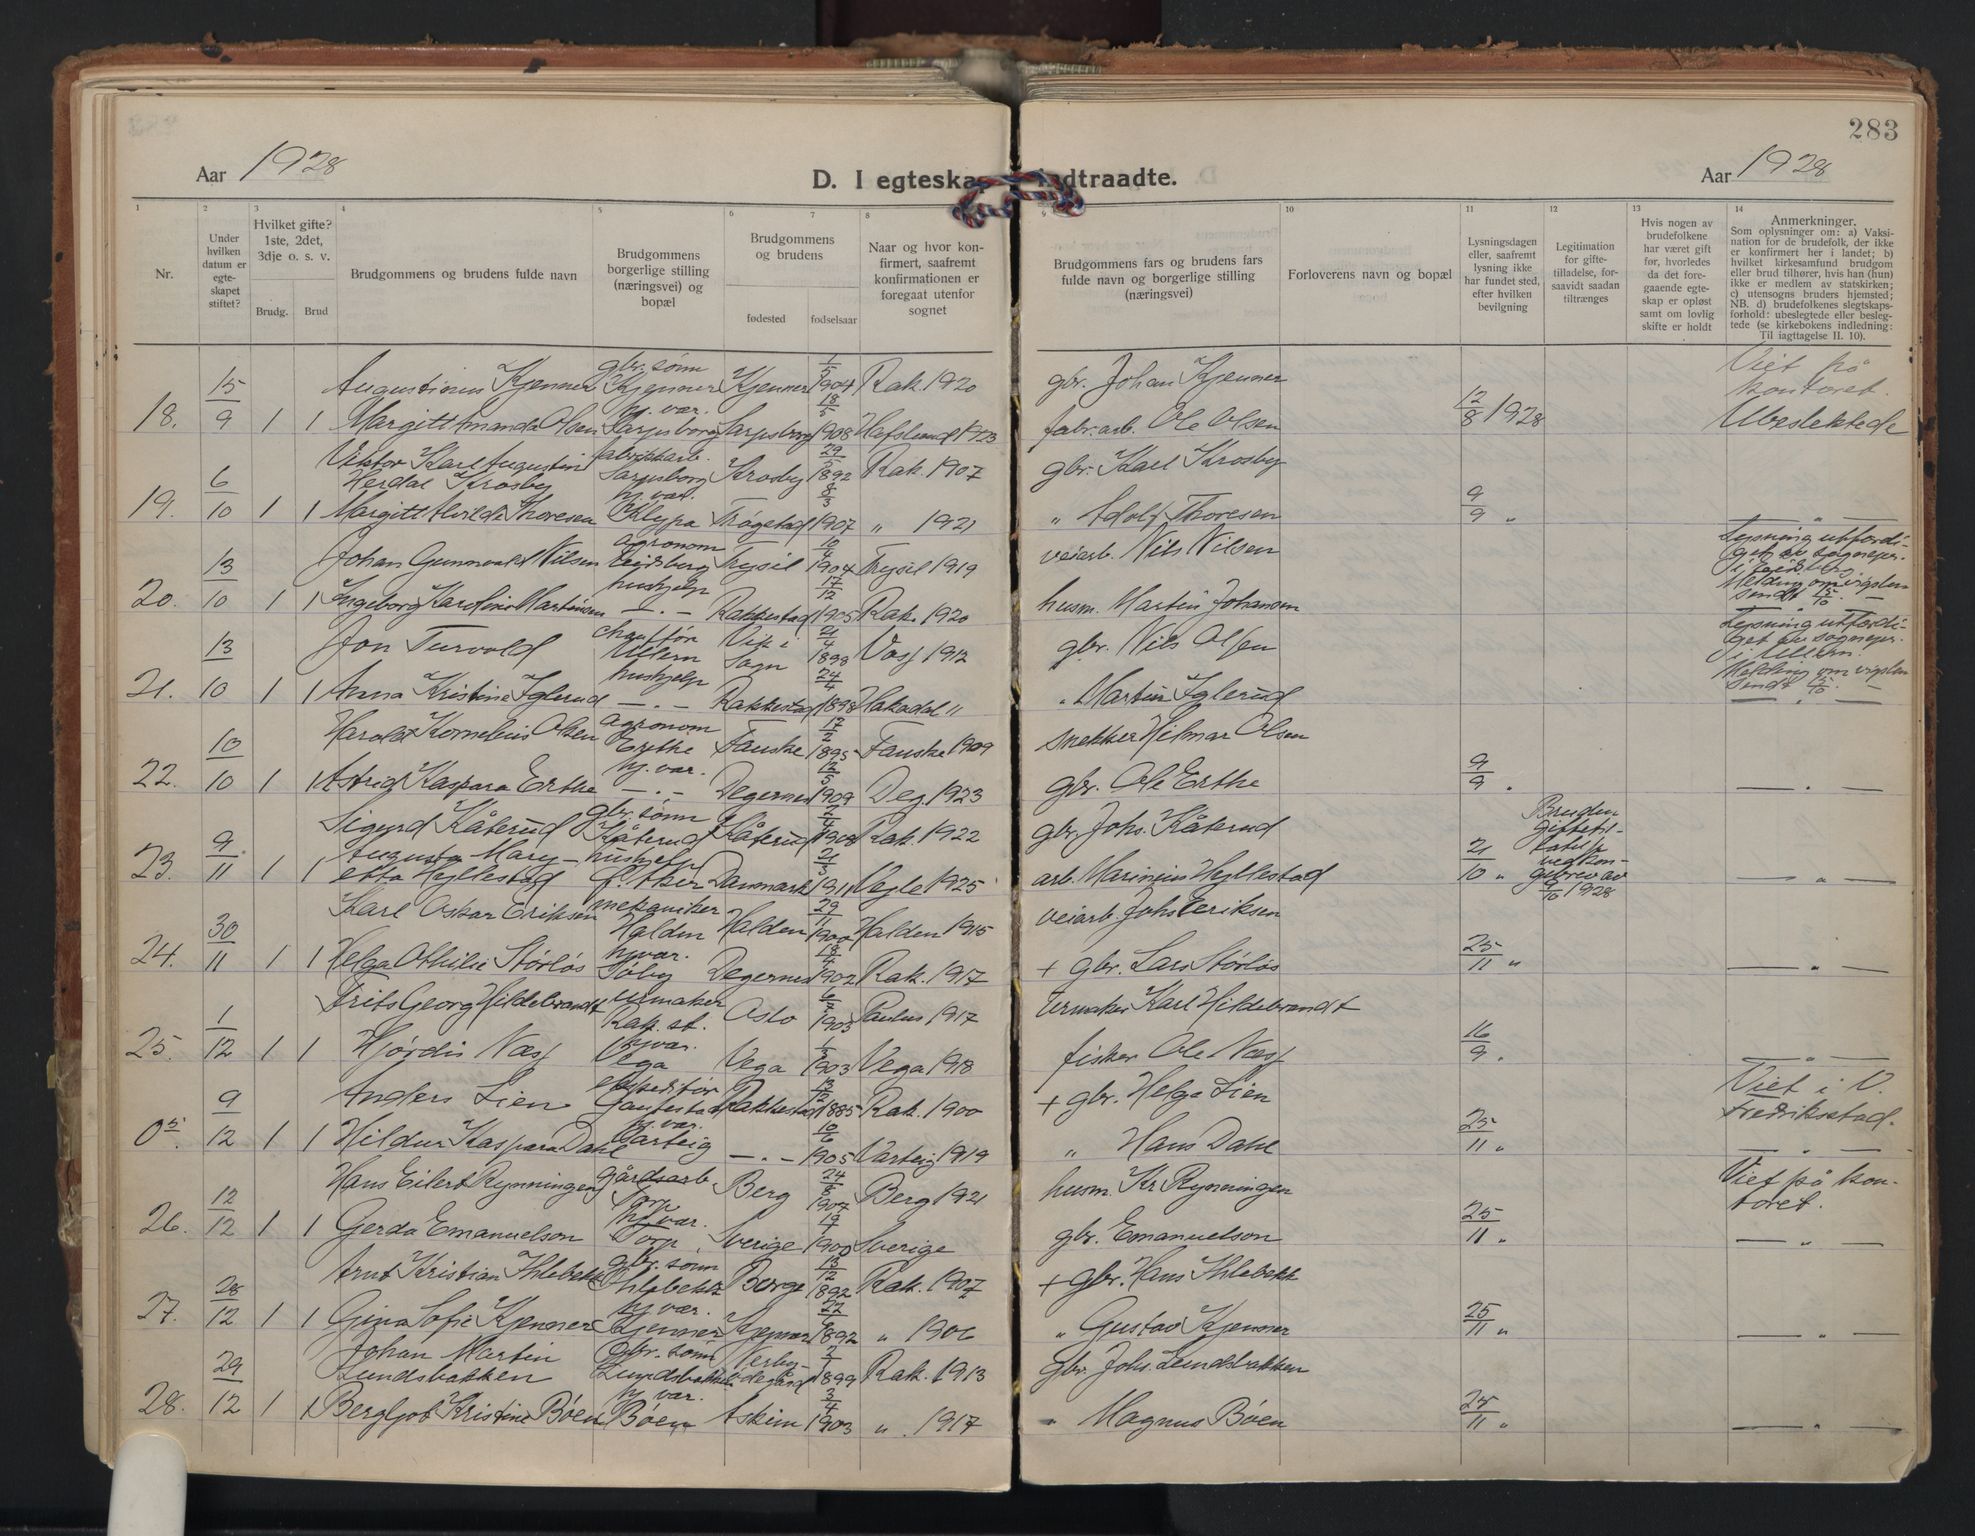 283
Aar 1928
D. I egteskap indtraadte.
Aar 1928
1 2 3 4 5 6 7 8 9 10 11 12 13 14
Nr.
Under hvilken datum er egteskapet stiftet?
Hvilket gifte? 1ste, 2det, 3dje o. s. v.
Brudg. Brud
Brudgommens og brudens fulde navn
Brudgommens borgerlige stilling (næringsvei) og bopæl
Brudgommens og brudens
fødested fødselsaar
Naar og hvor konfirmert, saafremt konfirmationen er foregaat utenfor sognet
Brudgommens fars og brudens fars fulde navn og borgerlige stilling (næringsvei)
Forloverens navn og bopæl
Lysningsdagen eller, saafremt lysning ikke har fundet sted, efter hvilken bevilgning
Legitimation for giftetilladelse, forsaavidt saadan tiltrænges
Hvis nogen av brudefolkene har været gift før, hvorledes da det foregaaende egteskap er opløst samt om lovlig skifte er holdt
Anmerkninger.
Som oplysninger om: a) Vaksination for de brudefolk, der ikke er konfirmert her i landet; b) hvilket kirkesamfund brudgom eller brud tilhører, hvis han (hun) ikke er medlem av statskirken; c) utensogns bruders hjemsted; NB. d) brudefolkenes slegtskapsforhold: ubeslegtede eller beslegtede (se kirkebokens indledning: Til iagttagelse II. 10).
15/9 Augustinus Kjenner gbr. sønn Kjenner Kjenner 1/5 1904 Rak. 1920 gbr. Johan Kjenner Viet på kontoret.
18. 1 1 Margitt Amanda Olsen hj. var. Sarpsborg Sarpsborg 18/5 1908 Hafslund 1923 fabr. arb. Ole Olsen 12/8 1928 Ubeslektede
6/10 Viktor Karl Augustin Herdal Krosby fabrikkarb. Sarpsborg Krosby 1892 Rak. 1907 gbr. Karl Krosby
19. 1 1 Margitt Alvilde Thoresen hj. var. Klypa Trøgstad 8/3 1907 " 1921 " Adolf Thoresen 9/9 " — " —
13/10 Johan Gunnvald Nilsen agronom Eidsberg Trysil 10/4 1904 Trysil 1919 veiarb. Nils Nilsen Lysning utferdiget av sogneper. i Eidsberg. Melding om vigslen sendt 15/10. —
20. 1 1 Ingeborg Karoline Martinsen hushjelp — . - Rakkestad 17/12 1905 Rak. 1920 husm. Martin Johansen
13/10 Jon Turvold chauffør Ullern Vik i Sogn 21/4 1898 Voss 1912 gbr. Nils Olsen Lysning utferdiget av sogneper. i Ullern. Melding om vigslen sendt 15/10. —
21. 1 1 Anna Kristine Iglerud hushjelp — . - Rakkestad 24/4 1898 Hakadal " " Martin Iglerud — " —
10/10 Harald Kornelius Olsen agronom Erthe Fauske 17/2 1895 Fauske 1909 snekker Hilmar Olsen
22. 1 1 Astrid Kaspara Erthe hj. var. — . - Degernes 12/5 1909 Deg. 1923 gbr. Ole Erthe 9/9 " — " —
9/11 Sigurd Kåterud gbr. sønn Kåterud Kåterud 1908 Rak. 1922 gbr. Johs. Kåterud
23. 1 1 Augusta Mary-etta Hyllestad hushjelp Danmark 21/3 1911 Vejle 1925 arb. Marinius Hyllestad 21/10 " Bruden giftetillatelse ved kon- gebrev av 9/10 1928 — " —
30/11 Karl Oskar Eriksen mekaniker Halden Halden 29/1 1900 Halden 1915 veiarb. Johs Eriksen
24. 1 1 Helga Othilie Størløs hj. var. Søby Degernes 1902 Rak. 1917 + gbr. Lars Størløs 25/11 " — " —
1/12 Frits Georg Hildebrandt urmaker Rak. st. Oslo 1903 Paulus 1917 Urmaker Karl Hildebrandt
25. 1 1 Hjørdis Næss hj. var. Vega Vega 1903 Vega 1918 fisker Ole Næss 16/9 " — " —
9/12 Anders Lien ekspeditør Gautestad Rakkestad 13/12 1885 Rak. 1900 + gbr. Helge Lien Viet i V. Fredriksstad.
1 1 Hildur Kaspara Dahl hj. var. Varteig — . - 10/6 1905 Varteig 1919 " Hans Dahl 25/11 " — " —
12/12 Hans Eilert Rynningen gårdsarb. Torp Berg 24/8 1907 Berg 1921 husm. Kr Rynningen Viet på kontoret.
26. 1 1 Gerda Emanuelson hj. var. Torp Sverige 19/7 1900 Sverige gbr. Emanuelson 25/11 " — " —
28/12 Arnt Kristian Ihlebekk gbr. sønn Ihlebekk Borge 13/12 1892 Rak. 1907 + gbr. Hans Ihlebekk
27. 1 1 Gina Sofie Kjenner hj. var. Kjenner Kjenner 1892 " 1906 " Gustav Kjenner 25/11 " — " —
29/12 Johan Martin Lundsbakken gbr. sønn Lundsbakken 1899 Rak. 1913 gbr. Johs. Lundsbakken
28. 1 1 Bergljot Kristine Bøen hj. var. Bøen Askim 3/4 1903 " 1917 " Magnus Bøen 25/11 " — " —